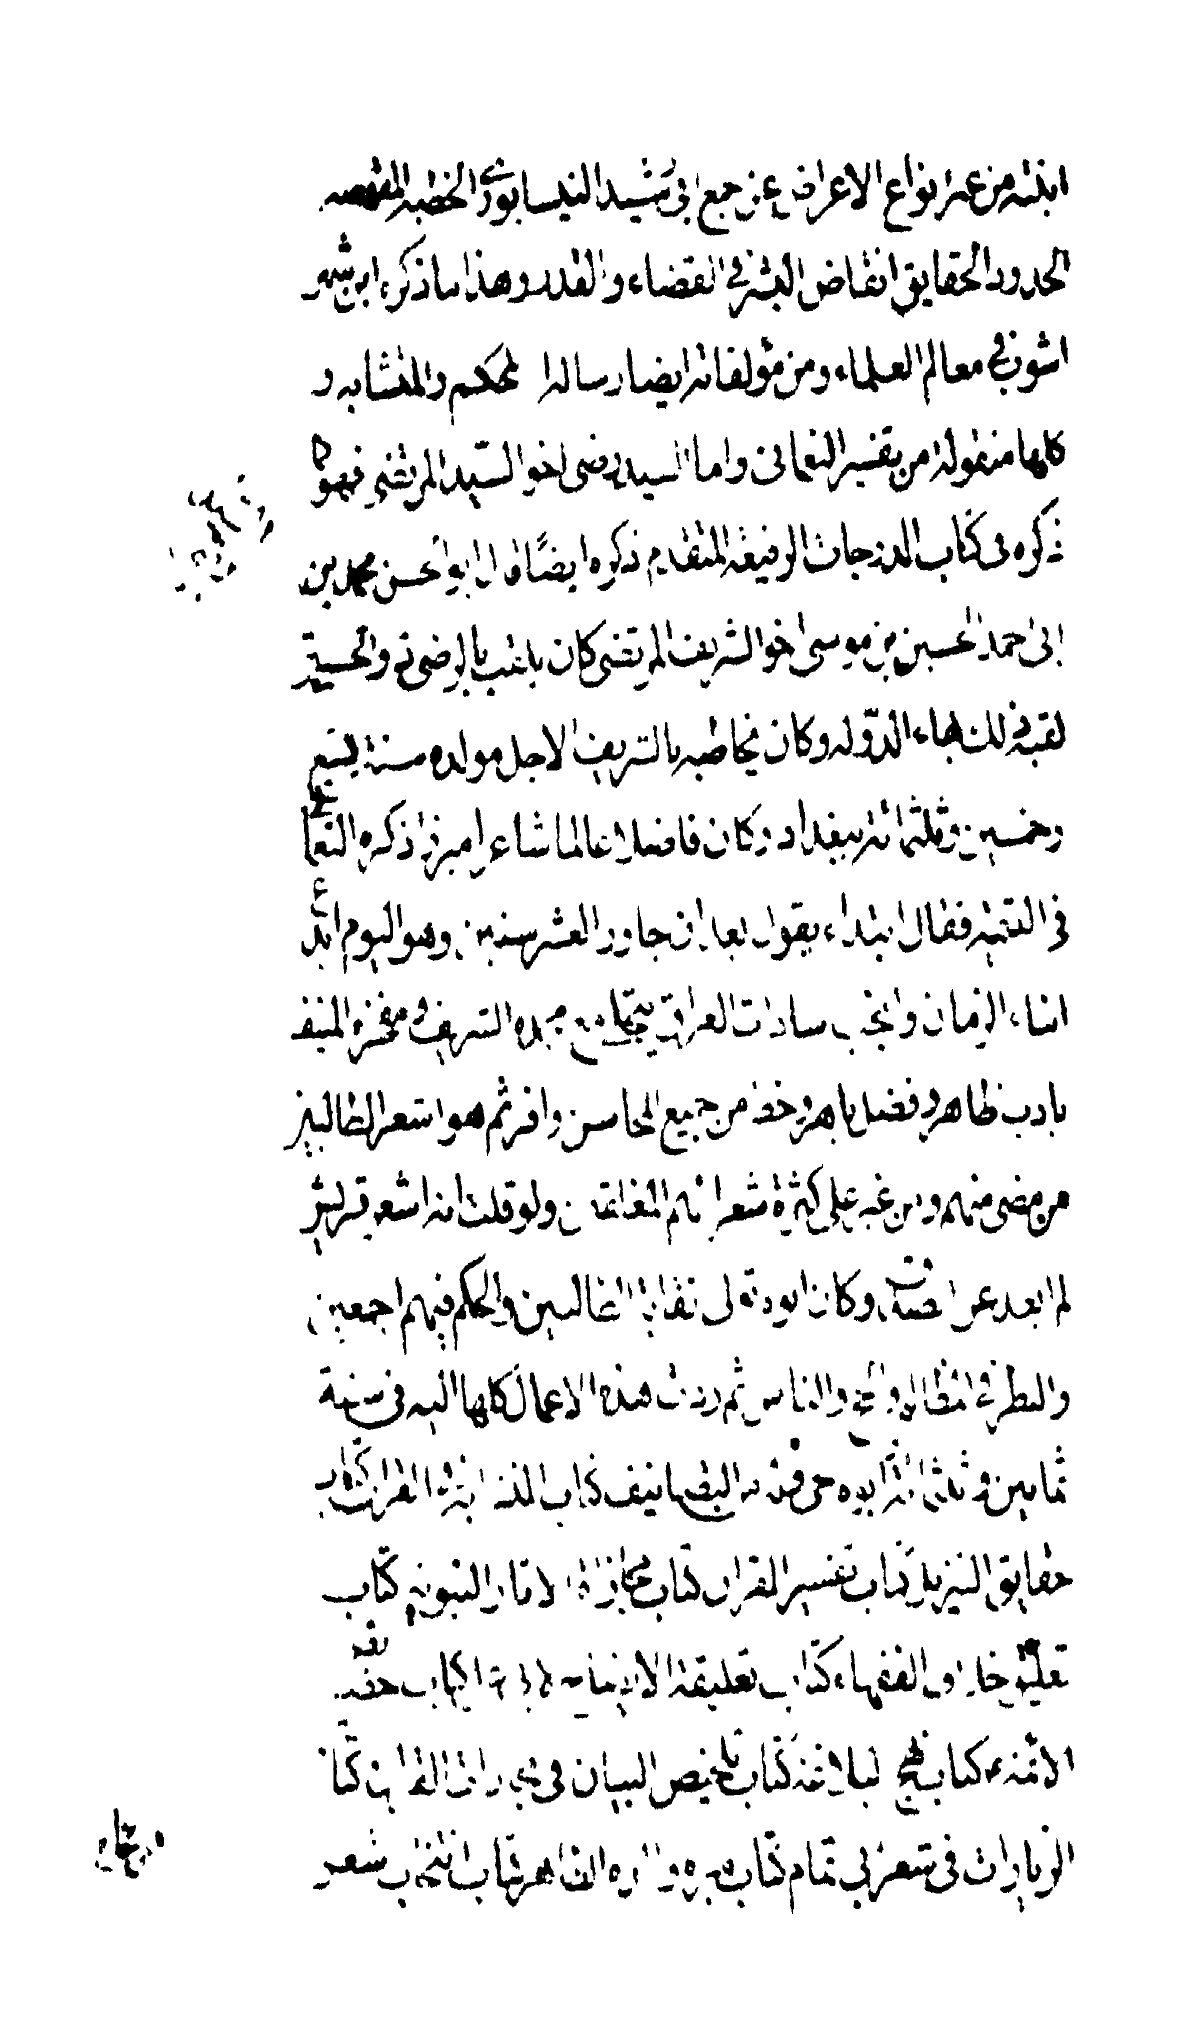 ابنته من عشر انواع الاعراف عن جمع ابى رشيد النيسابورى الخطبة المقمصه
الحدود الحقايق انقاض البشر فى القضاء والقدر وهذا ما ذكره ابن شهر
اشوب فى معالم العلماء ومن مؤلفاته ايضا رسالة المحكم والمتشابه و
كلها منقوله من تفسير النعمانى واما السيد رضى اخو السيد المرتضى فهو كما
ذكره فى كتاب الدرجات الرفيعه المتقدم ذكره ايضًا قال ابو الحسن محمد بن
ابى احمد الحسين بن موسى اخو الشريف المرتضى كان يلقب بالرضى ذو الحسبين
لقبه بذلك بهاء الدّوله وكان يخاطبه بالشريف الاجل مولده سنة تسع
وخمسين وثلثمائة ببغداد وكان فاضلا عالما شاعرا مبرزا ذكره الثعالبى
فى اليتيمه فقال ابتداء يقول بعد ان جاوز العشر سنين وهو اليوم ابدع
ابناء الزمان وانجب سادات العراق يتحلى مع محتده الشريف ومفخره المنيف
بادب ظاهر وفضل باهر وحظ من جميع المحاسن وافر ثم هو اشعر الطالبيين
من مضى منهم ومن غبر على كثرة شعرائهم المفلقين ولو قلت انه اشعر قريش
لم ابعد عن الصدق وكان ابوه تولى نقابة الطالبيين والحكم فيهم اجمعين
والنظر فى المظالم والحج بالناس ثم ردت هذه الاعمال كلها اليه فى سنة
ثمانين وثلثمائة ابوه حى وله من التصانيف كتاب المتشابه فى القران كتاب
حقايق التنزيل كتاب تفسير القران كتاب مجازات الاثار النبويه كتاب
تعليق خلاف الفقهاء كتاب تعليقة الايضاح لابى على كتاب خصايص
الائمه كتاب نهج البلاغه كتاب تلخيص البيان فى مجازات القران كتاب
الزيادات فى شعر ابى تمام كتاب سيرة والده الطاهر كتاب انتخاب شعر